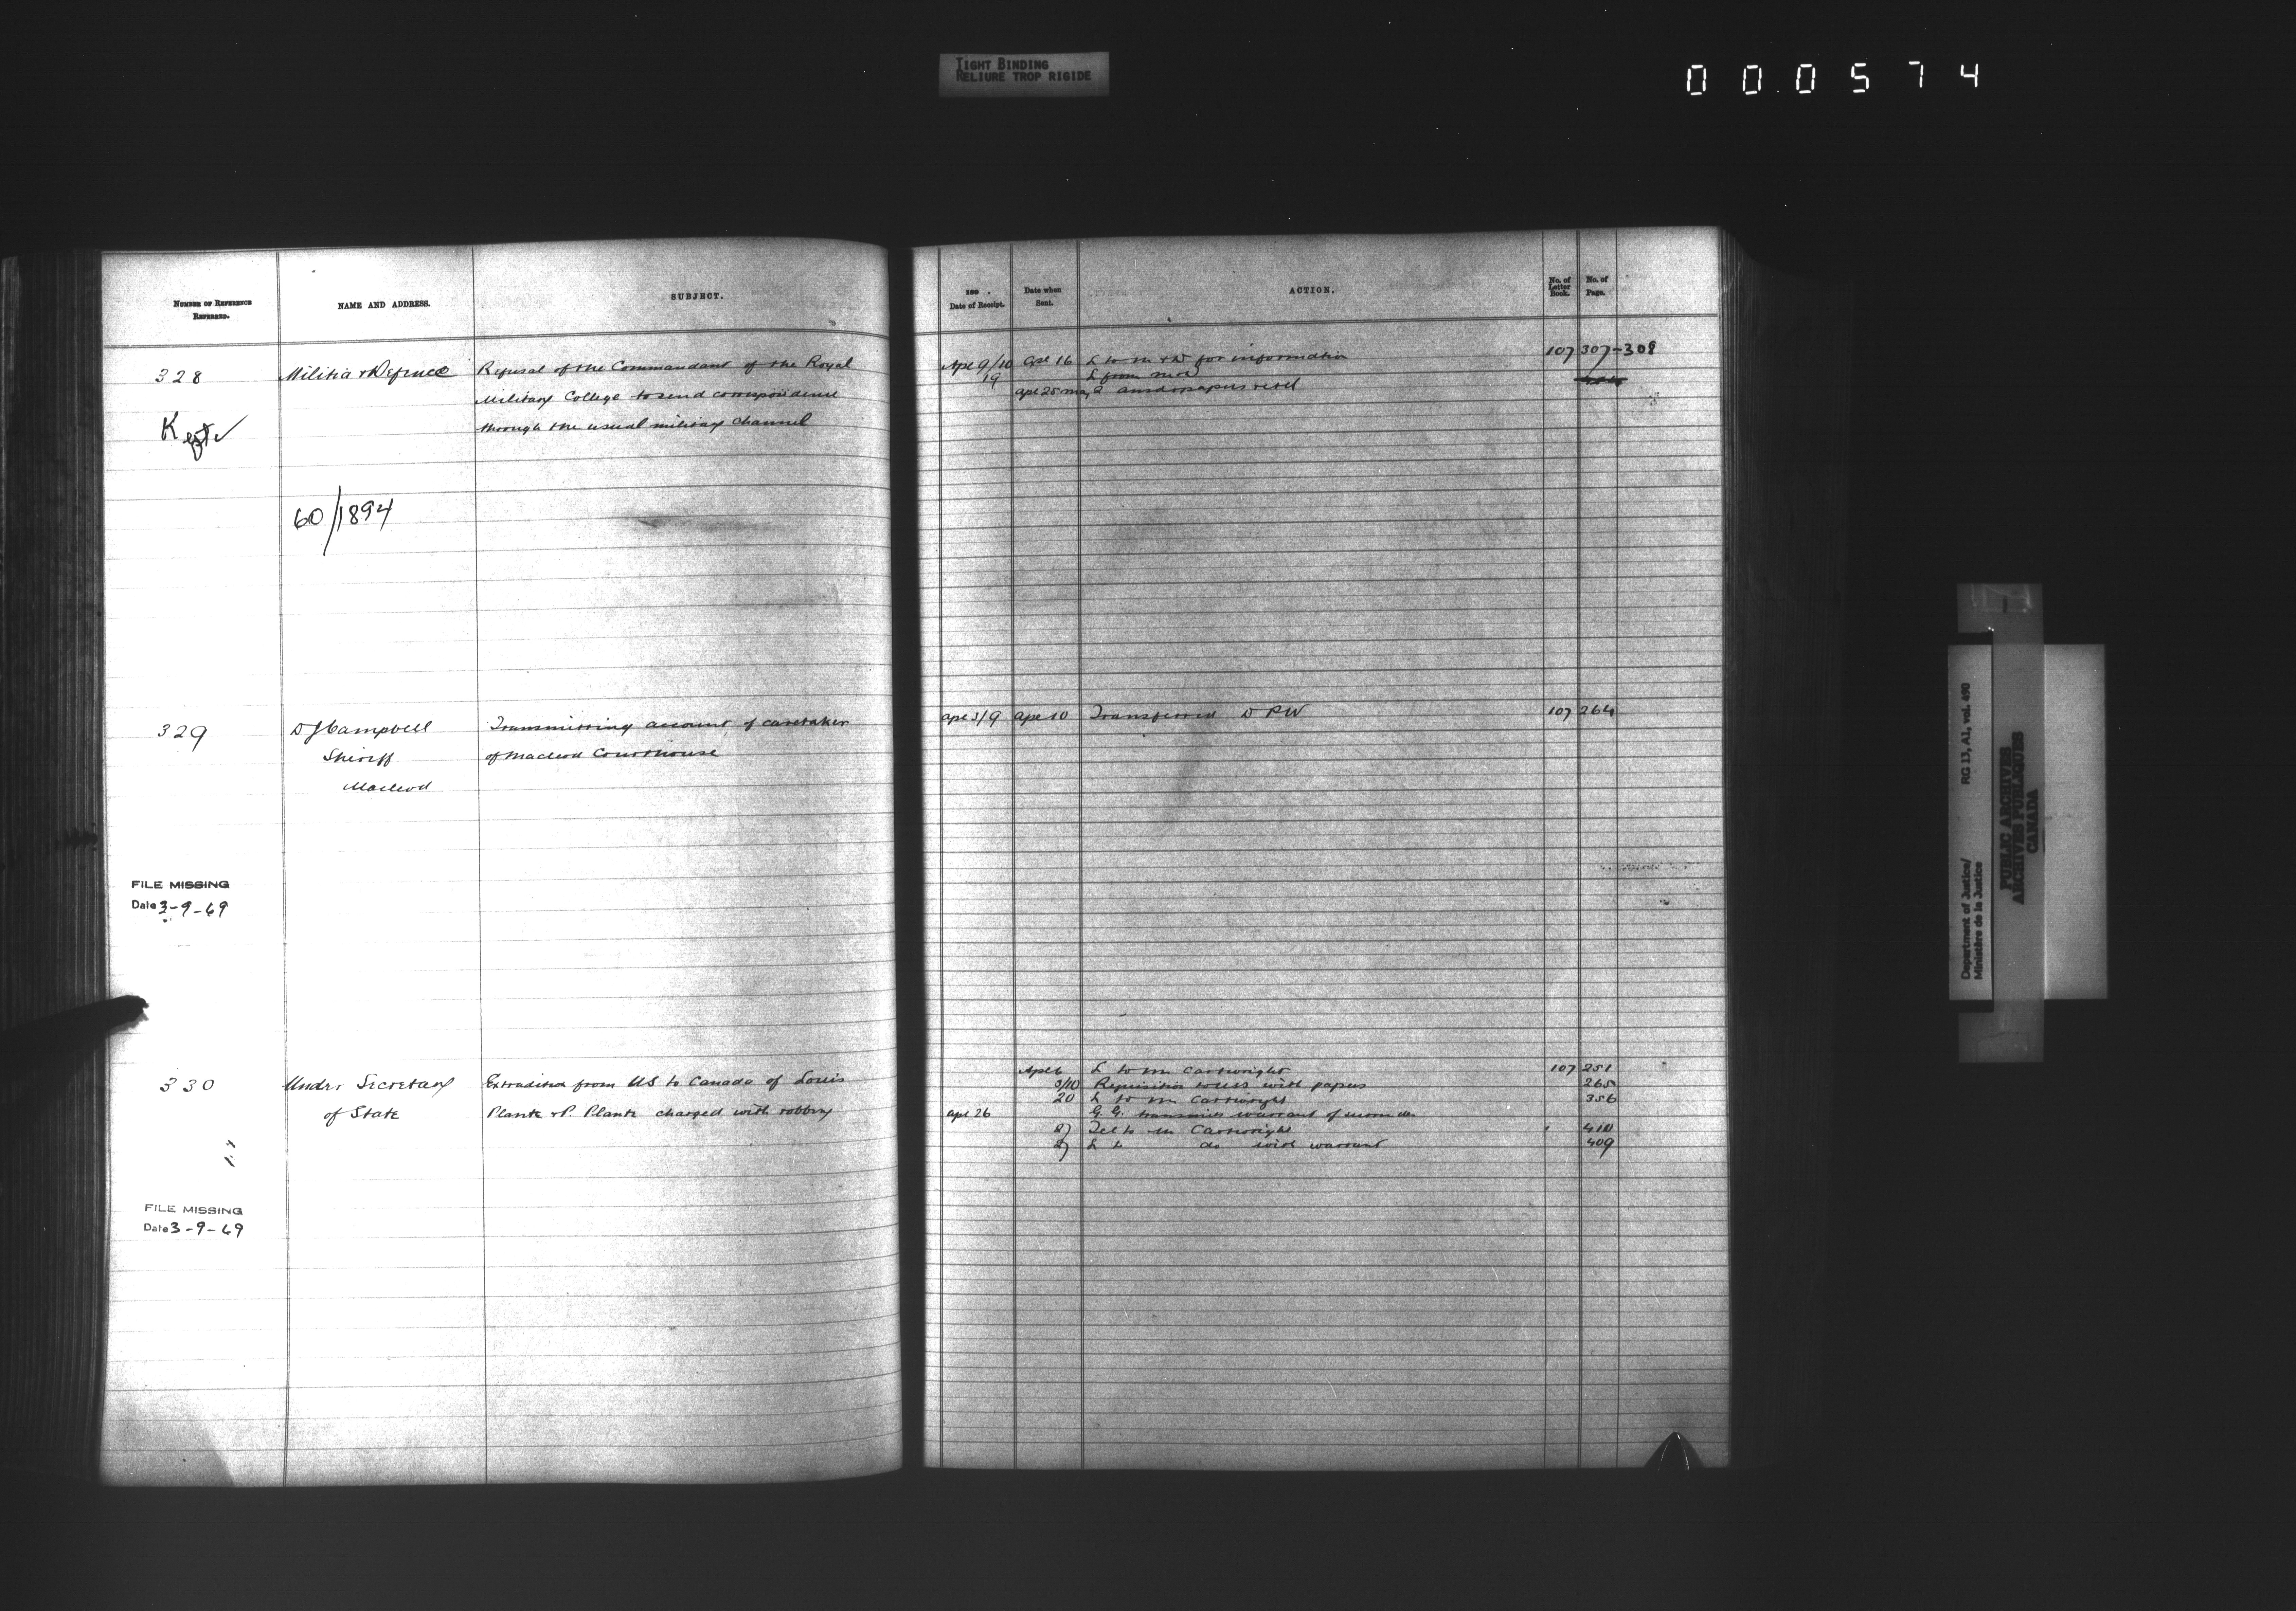 TIGHT BINDING
RELIURE TROP RIGIDE
000574
NUMBER OF REFERENCE
REFERRED.
NAME AND ADDRESS.
SUBJECT.
328
Militia & Defence
Refusal of the Commandant of the Royal
Military College to send correspondence
through the usual military channel
Kept
60/1894
329
D J Campbell
Sheriff
Macleod
Transmitting account of caretaker
of Macleod Courthouse
FILE MISSING
Date 3-9-69
330
Under Secretary
of State
Extradition from US to Canada of Louis
Plante & P. Plante charged with robbery
FILE MISSING
Date 3-9-69
189 .
Date of Receipt.
Date when
Sent.
ACTION.
No. of
Letter
Book.
No. of
Page.
Apl 9/10 Apl 16 L to M & D for information 107 307-308
19 L from
Apl 25 May 2 papers retd
Apl 3/9 Apl 10 Transferred D PW 107 264
Apl 6 L to Mr Cartwright 107 251
3/10 Requisition to US with papers 265
20 L to Mr Cartwright 356
Apl 26 G. G. transmits warrant of
27 Tel to Mr Cartwright 410
27 L to do with warrant 409
Department of Justice/
Ministère de la Justice
RG 13, A1, vol. 490
PUBLIC ARCHIVES
ARCHIVES PUBLIQUES
CANADA